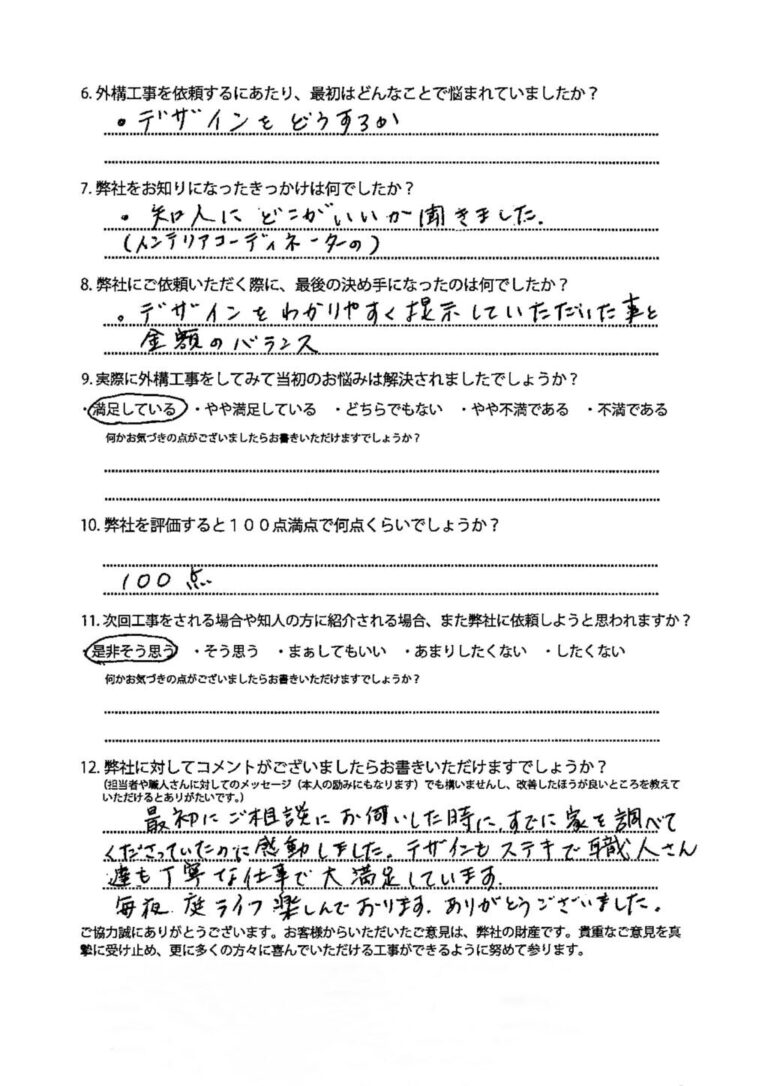 6. 外構工事を依頼するにあたり、最初はどんなことで悩まれていましたか？
。デザインを どうするか
7. 弊社をお知りになったきっかけは何でしたか？
・知人に どこがいいか聞きました.
(インテリアコーディネーターの)
8. 弊社にご依頼いただく際に、最後の決め手になったのは何でしたか？
。デザインをわかりやすく提示していただいた事と
金額のバランス
9. 実際に外構工事をしてみて当初のお悩みは解決されましたでしょうか？
・満足している ・やや満足している ・どちらでもない ・やや不満である ・不満である
何かお気づきの点がございましたらお書きいただけますでしょうか？
10. 弊社を評価すると１００点満点で何点くらいでしょうか？
100 点
11. 次回工事をされる場合や知人の方に紹介される場合、また弊社に依頼しようと思われますか？
・是非そう思う ・そう思う ・まぁしてもいい ・あまりしたくない ・したくない
何かお気づきの点がございましたらお書きいただけますでしょうか？
12. 弊社に対してコメントがございましたらお書きいただけますでしょうか？
（担当者や職人さんに対してのメッセージ（本人の励みにもなります）でも構いませんし、改善したほうが良いところを教えて
いただけるとありがたいです。）
最初にご相談にお伺いした時に、すでに家を調べて
くださっていたのに感動しました。デザインもステキで職人さん
達も丁寧な仕事で大満足しています.
毎夜 庭ライフ楽しんでおります. ありがとうございました。
ご協力誠にありがとうございます。お客様からいただいたご意見は、弊社の財産です。貴重なご意見を真
摯に受け止め、更に多くの方々に喜んでいただける工事ができるように努めて参ります。